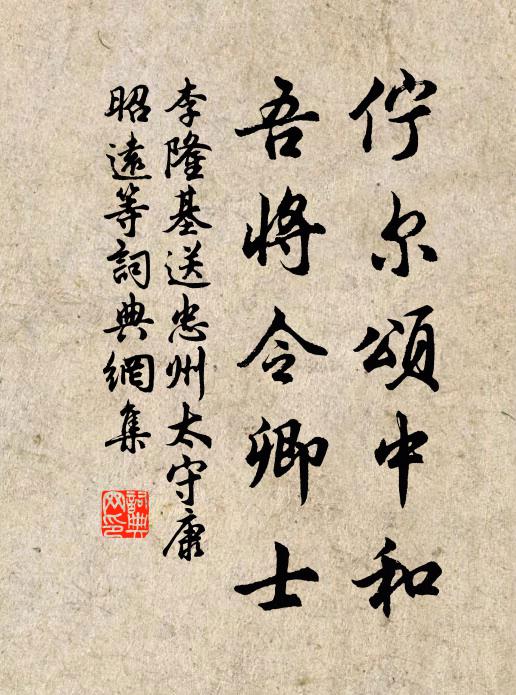 佇尔頌中和
吾將令卿士
李隆基送忠州太守康
昭遠等詞典網集
詞典网印